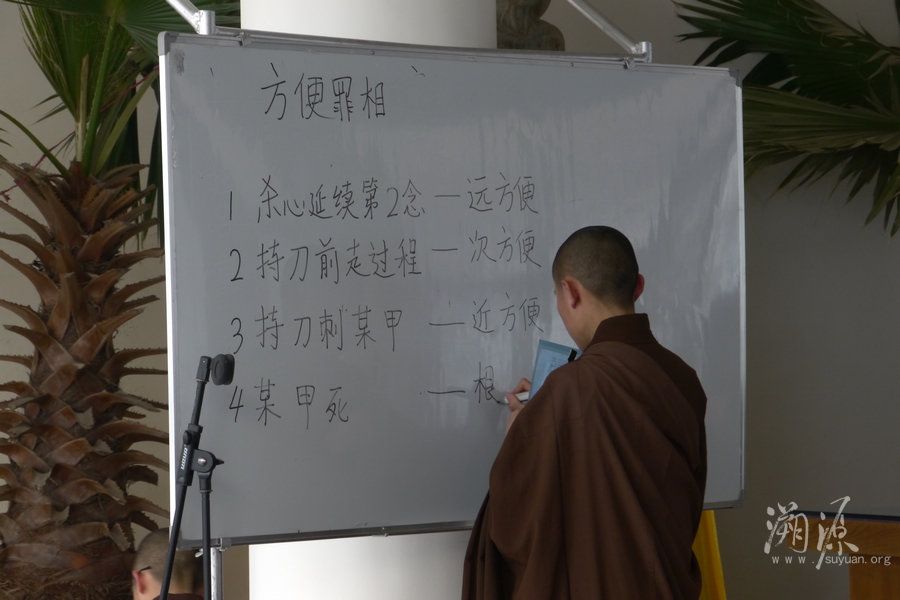 方便罪相
1 杀心延续第2念 — 远方便
2 持刀前走过程 — 次方便
3 持刀刺某甲 — 近方便
4 某甲死 — 根
溯源
www.suyuan.org